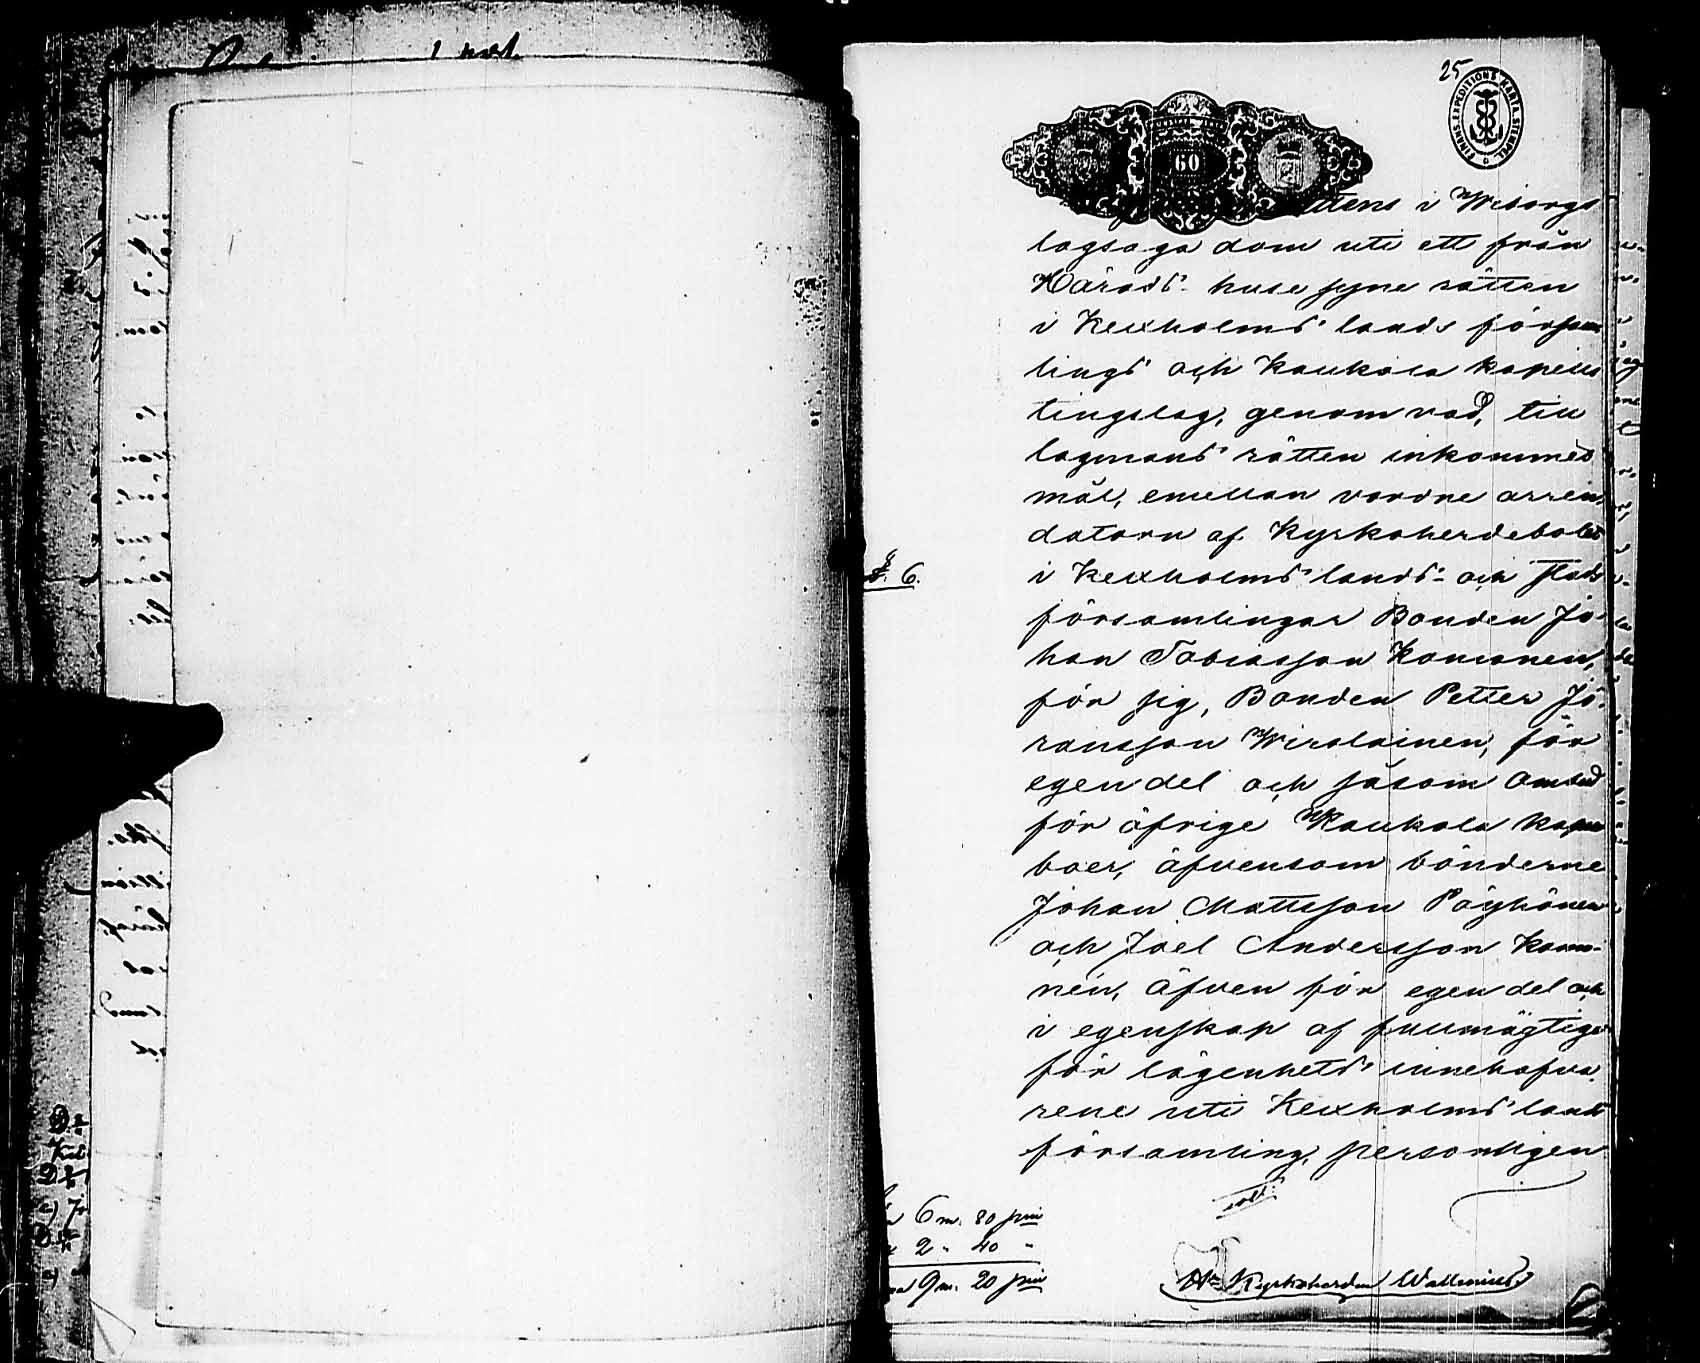 25
FINANS EXPEDITIONS KARTA STEMPEL
60
i Wiborgs
lagsaga dom uti ett från
Härads- husesyne rätten
i Kexholms lands försam
lings och Kaukola kapells
tingslag, genom vad, till
lagmans rätten inkommet
mål, emellan vordne arren
datorn af Kyrkoherdebolet
i Kexholms lands- och stads
församlingar Bonden Jo-
han Tobiasson Komonen,
för sig, Bonden Petter Jö-
ransson Wirolainen, för
egen del och såsom ombud
för öfrige Kaukola kapell
boer, äfvensom bönderne
Johan Mattsson Pöyhönen
och Joel Andersson
nen, äfven för egen del och
i egenskap af fullmägtige
för lägenhets innehafva
rene uti Kexholms lands
församling, personligen
№ 6.
6 m. 80 pni
2 " 40 "
9 m. 20 pni
Hr Kyrkoherden Wallenius